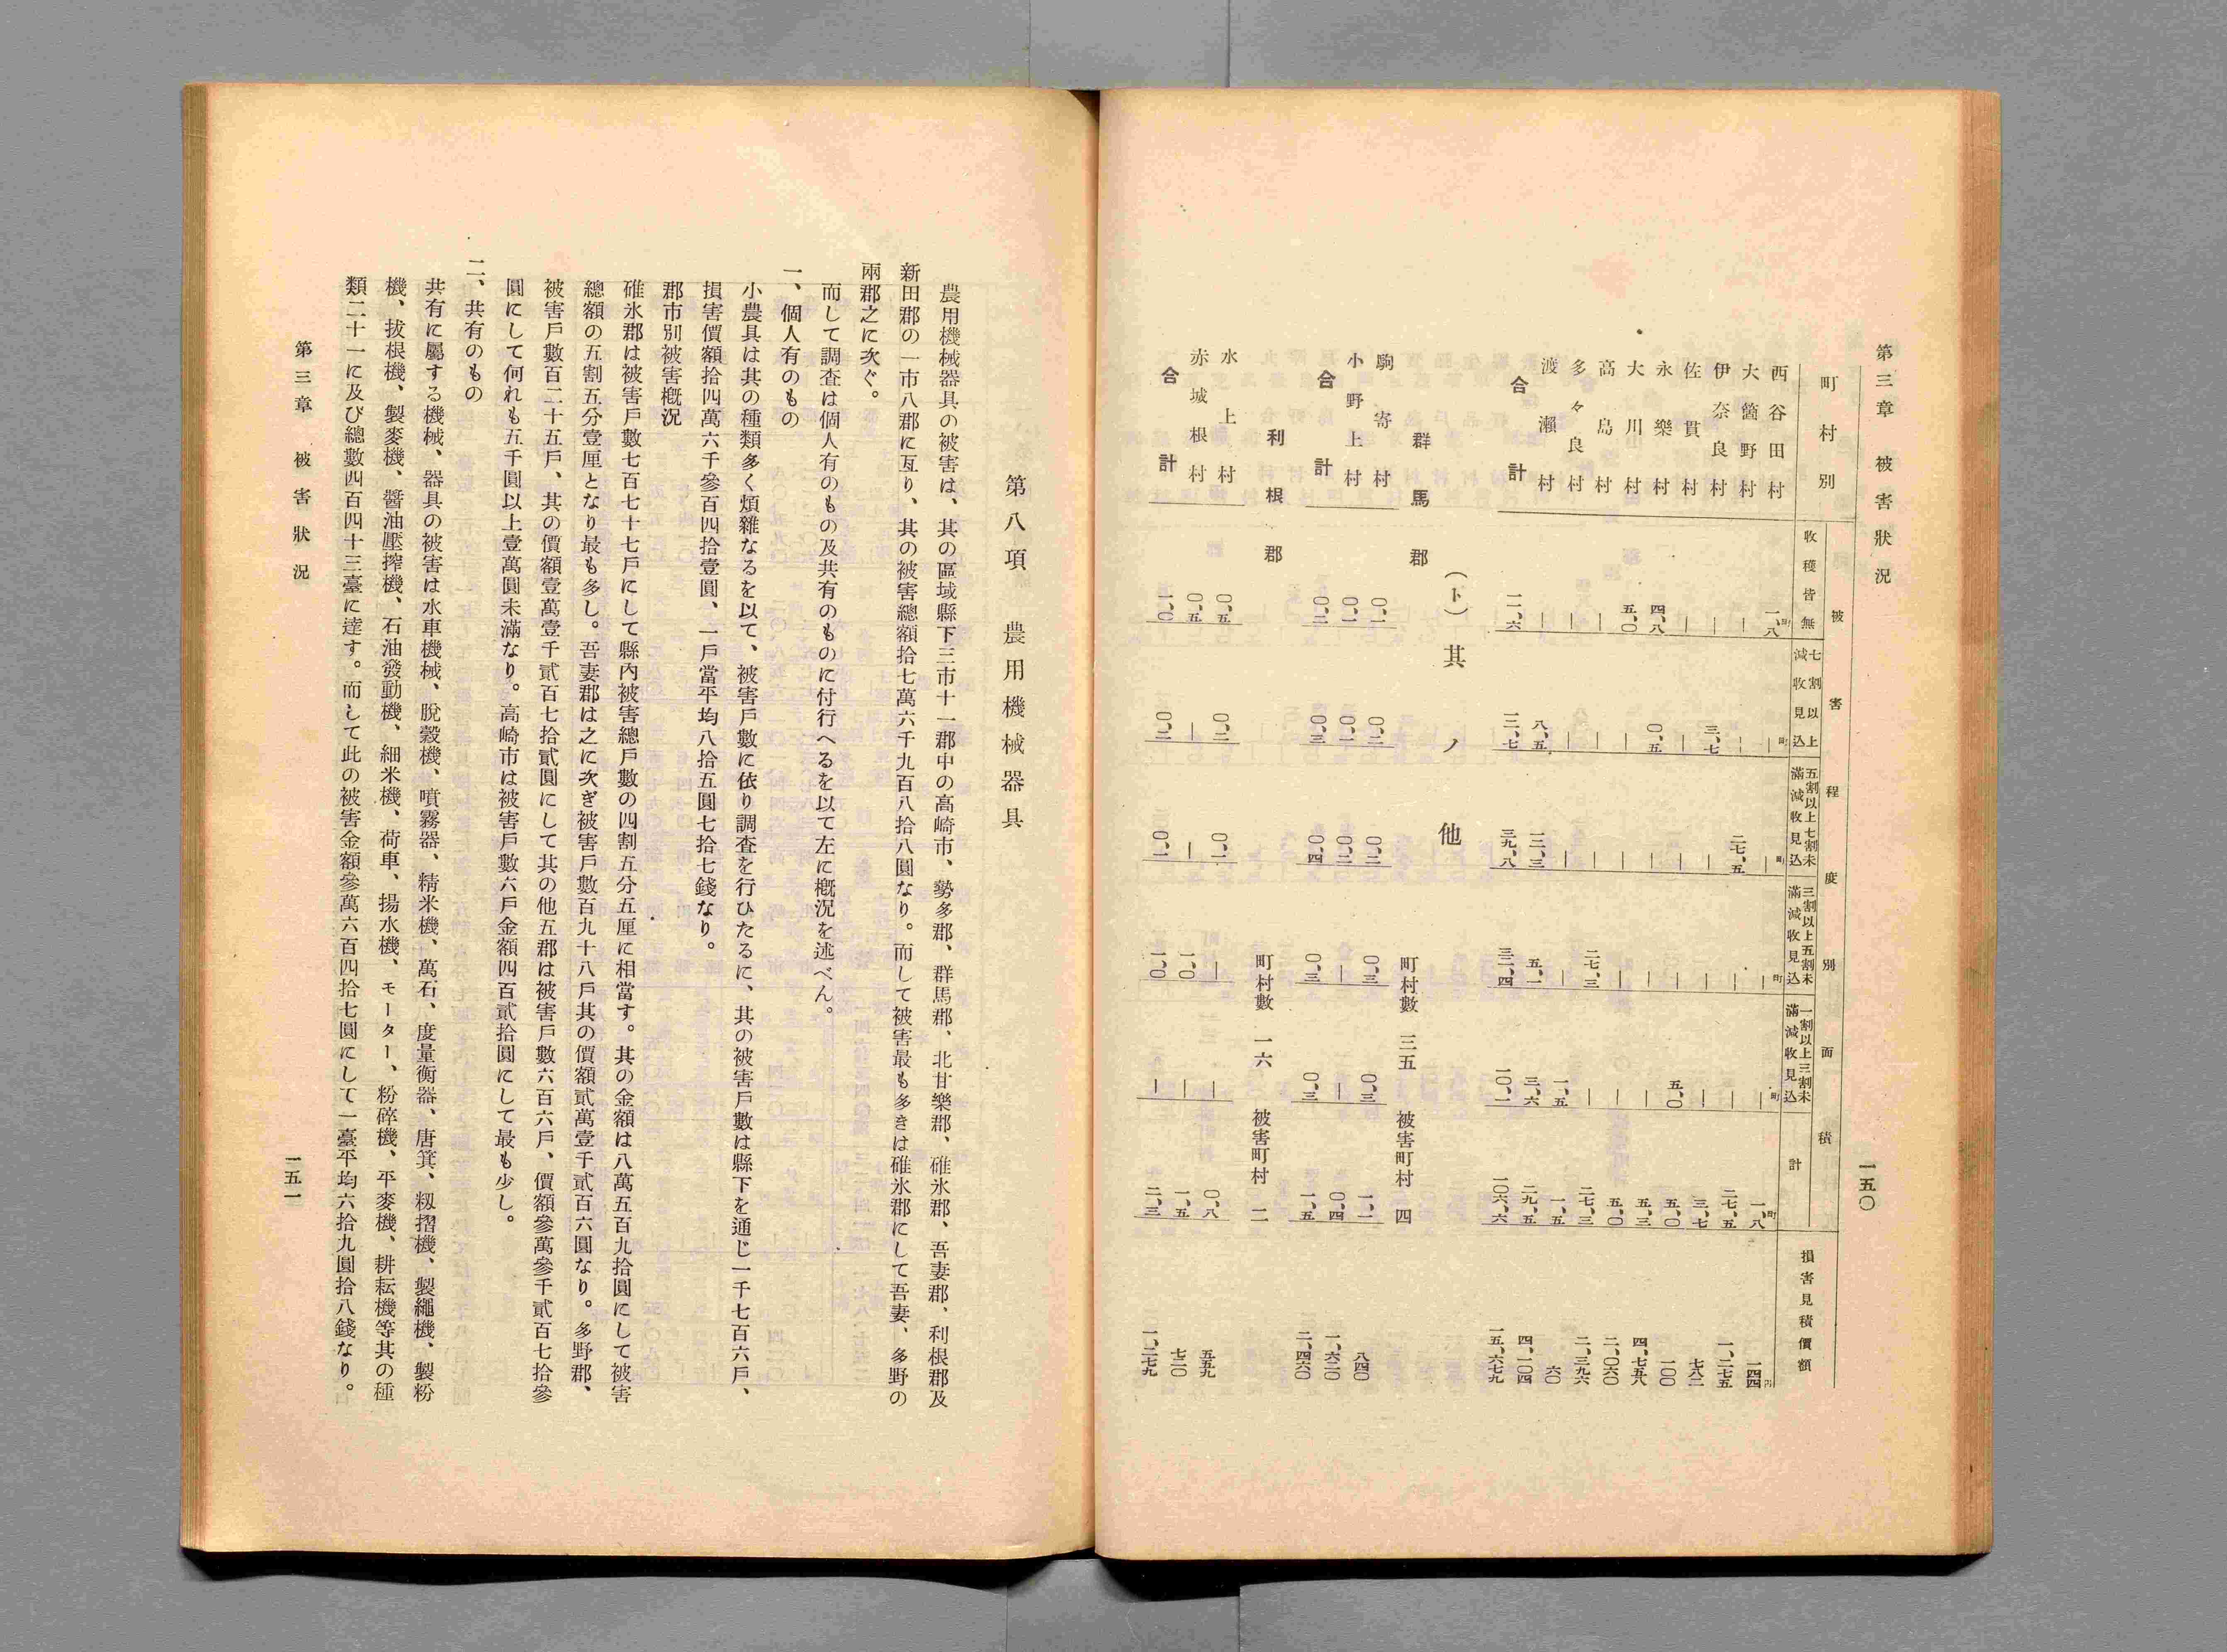 第三章 被害狀況 一五〇
町村別
被害程度別面積
收穫皆無
七割以上減收見込
五割以上七割未滿減收見込
三割以上五割未滿減收見込
一割以上三割未滿減收見込
計
損害見積價額
西谷田村 一、八町 ―町 ―町 ―町 ―町 一、八町 一四四円
大箇野村 ― ― 二七、五 ― ― 二七、五 一、二七五
伊奈良村 ― 三、七 ― ― ― 三、七 七八二
佐貫村 ― ― ― ― 五、〇 五、〇 一〇〇
永樂村 四、八 〇、五 ― ― ― 五、三 四、七五八
大川村 五、〇 ― ― ― ― 五、〇 二、〇六〇
高島村 ― ― ― 二七、三 ― 二七、三 二、三九六
多々良村 ― ― ― ― 一、五 一、五 六〇
渡瀨村 ― 八、五 一二、三 五、一 三、六 二九、五 四、一〇四
合計 一一、六 一二、七 三九、八 三二、四 一〇、一 一〇六、六 一五、六七九
(下) 其ノ他
群馬郡 町村數 三五 被害町村 四
駒寄村 〇、一 〇、二 〇、二 〇、三 〇、三 一、一 八四〇
小野上村 〇、一 〇、一 〇、二 ― ― 〇、四 一、六二〇
合計 〇、二 〇、三 〇、四 〇、三 〇、三 一、五 二、四六〇
利根郡 町村數 一六 被害町村 二
水上村 〇、五 〇、二 〇、一 ― ― 〇、八 五五九
赤城根村 〇、五 ― ― 一、〇 ― 一、五 七二〇
合計 一、〇 〇、二 〇、一 一、〇 ― 二、三 一、二七九
第八項 農用機械器具
農用機械器具の被害は、其の區域縣下三市十一郡中の高崎市、勢多郡、群馬郡、北甘樂郡、碓氷郡、吾妻郡、利根郡及
新田郡の一市八郡に亙り、其の被害總額拾七萬六千九百八拾八圓なり。而して被害最も多きは碓氷郡にして吾妻、多野の
兩郡之に次ぐ。
而して調査は個人有のもの及共有のものに付行へるを以て左に槪況を述べん。
一、個人有のもの
小農具は其の種類多く煩雜なるを以て、被害戶數に依り調査を行ひたるに、其の被害戶數は縣下を通じ一千七百六戶、
損害價額拾四萬六千參百四拾壹圓、一戶當平均八拾五圓七拾七錢なり。
郡市別被害槪況
碓氷郡は被害戶數七百七十七戶にして縣內被害總戶數の四割五分五厘に相當す。其の金額は八萬五百九拾圓にして被害
總額の五割五分壹厘となり最も多し。吾妻郡は之に次ぎ被害戶數百九十八戶其の價額貳萬壹千貳百六圓なり。多野郡、
被害戶數百二十五戶、其の價額壹萬壹千貳百七拾貳圓にして其の他五郡は被害戶數六百六戶、價額參萬參千貳百七拾參
圓にして何れも五千圓以上壹萬圓未滿なり。高崎市は被害戶數六戶金額四百貳拾圓にして最も少し。
二、共有のもの
共有に屬する機械、器具の被害は水車機械、脫穀機、噴霧器、精米機、萬石、度量衡器、唐箕、籾摺機、製繩機、製粉
機、拔根機、製麥機、醬油壓搾機、石油發動機、細米機、荷車、揚水機、モーター、粉碎機、平麥機、耕耘機等其の種
類二十一に及び總數四百四十三臺に達す。而して此の被害金額參萬六百四拾七圓にして一臺平均六拾九圓拾八錢なり。
第三章 被害狀況 一五一